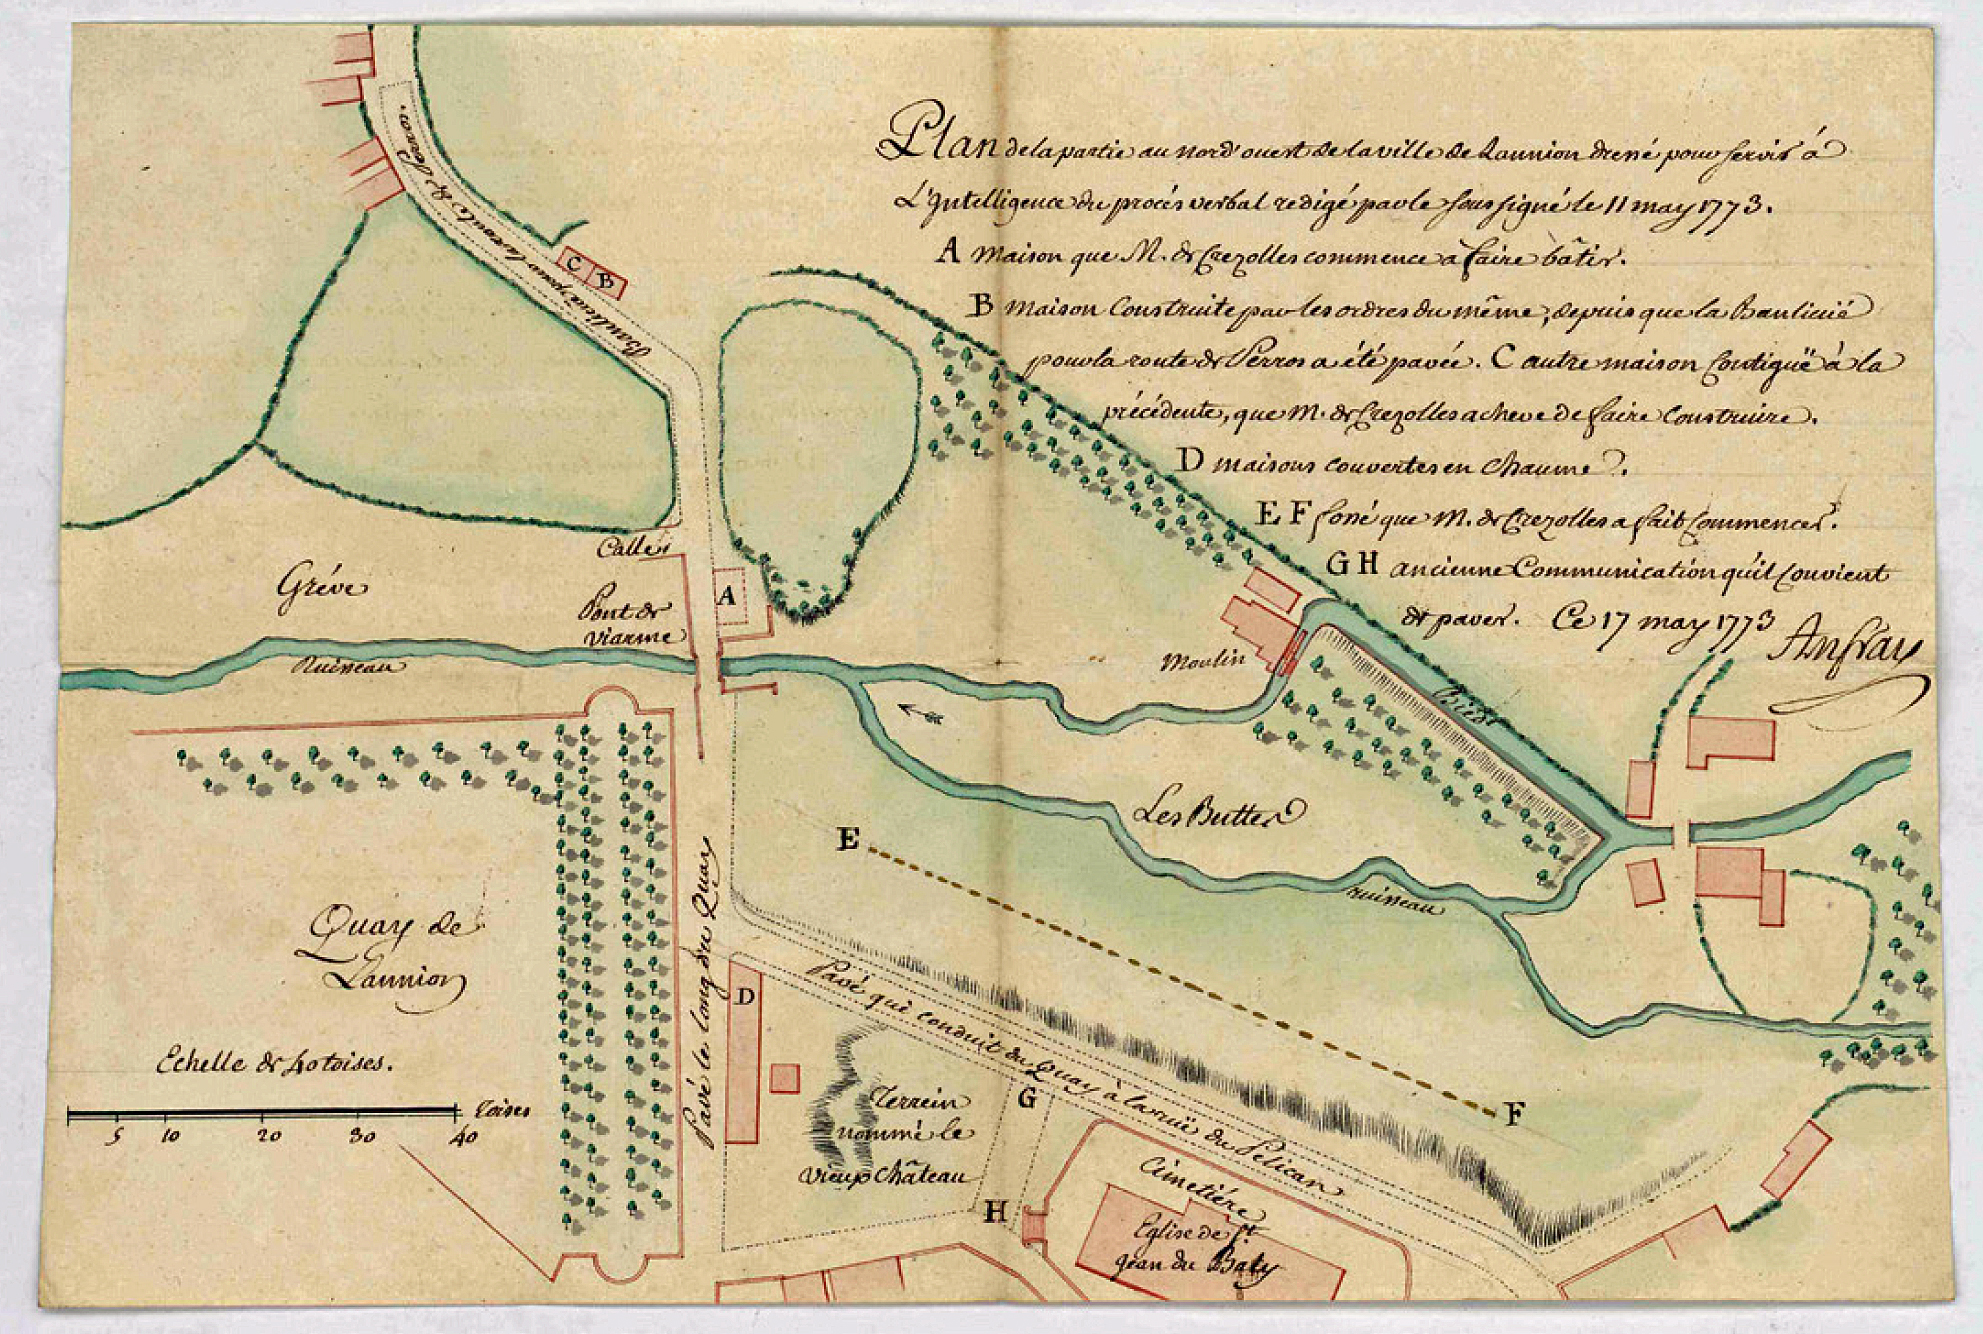 Plan de la partie au nord'ouest de la ville de Lannion dressé pour servir á
L'Intelligence du procés verbal redigé par le soussigné le 11 may 1773.
A maison que M. de Crezolles commence a faire bâtir.
B maison Construite par les ordres du même, depuis que la Banlieüe
pour la route de Perros a été pavée. C autre maison Contiguë à la
précédente, que M. de Crezolles acheve de faire Construire.
D maisons couvertes en chaume.
E F fossé que M. de Crezolles a fait Commencer.
G H ancienne Communication qu'il Convient
de paver. Ce 17 may 1773 Anfray
Banlieüe pour la route de Perros.
C B
Calle
Gréve
Pont de
viarme
A
Ruisseau
Moulin
Bief
Les Buttes
ruisseau
E
F
Quay de
Lannion
Pavé le long du Quay
Pavé qui conduit du Quay à la ruë du Pélican
D
Echelle de 40 toises.
toises
5 10 20 30 40
Terrein
nommé le
vieux Château
G
H
Cimetiére
Eglise de St
jean du Baly